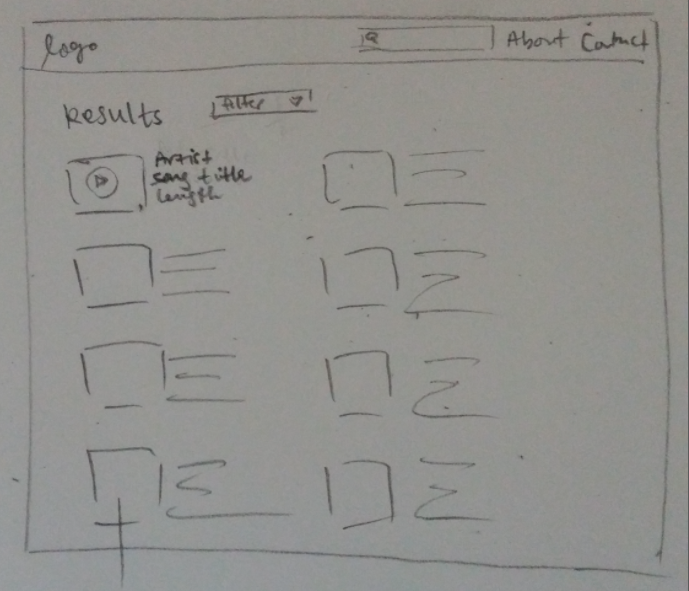 logo
About Contact
Results
filter
Artist
song title
length